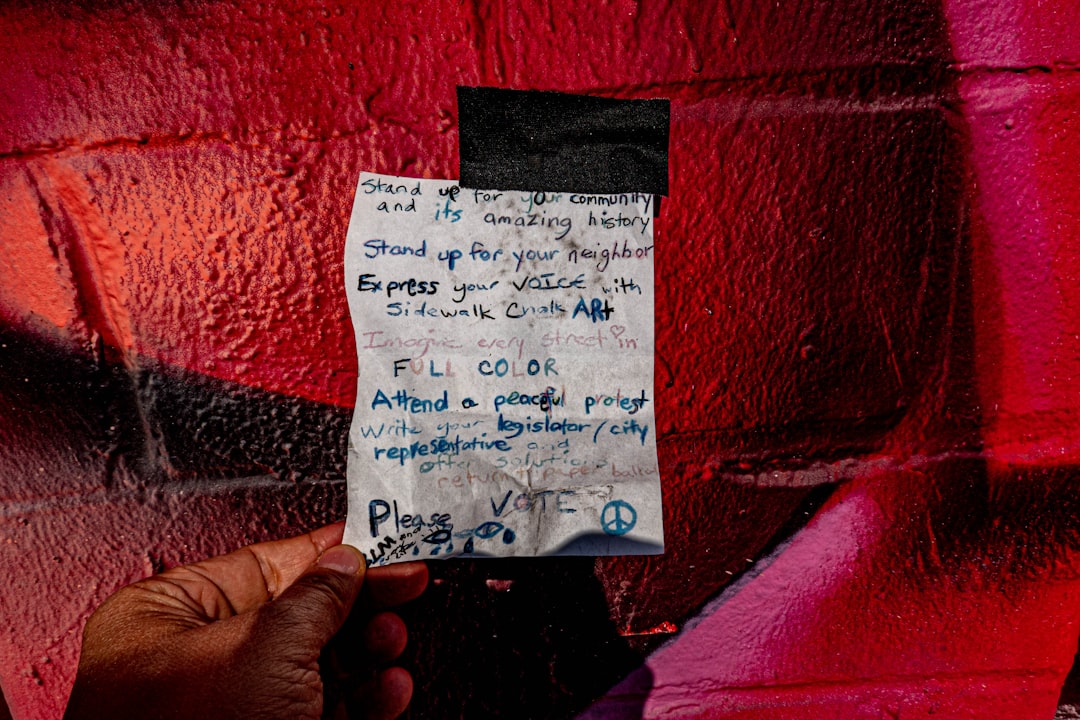 Stand up for your community
and its amazing history
Stand up for your neighbor
Express your VOICE with
Sidewalk Chalk ARt
Imagine every street in
FULL COLOR
Attend a peaceful protest
Write your legislator/city
representative and
offer solutions
return paper ballot
VOTE
Please